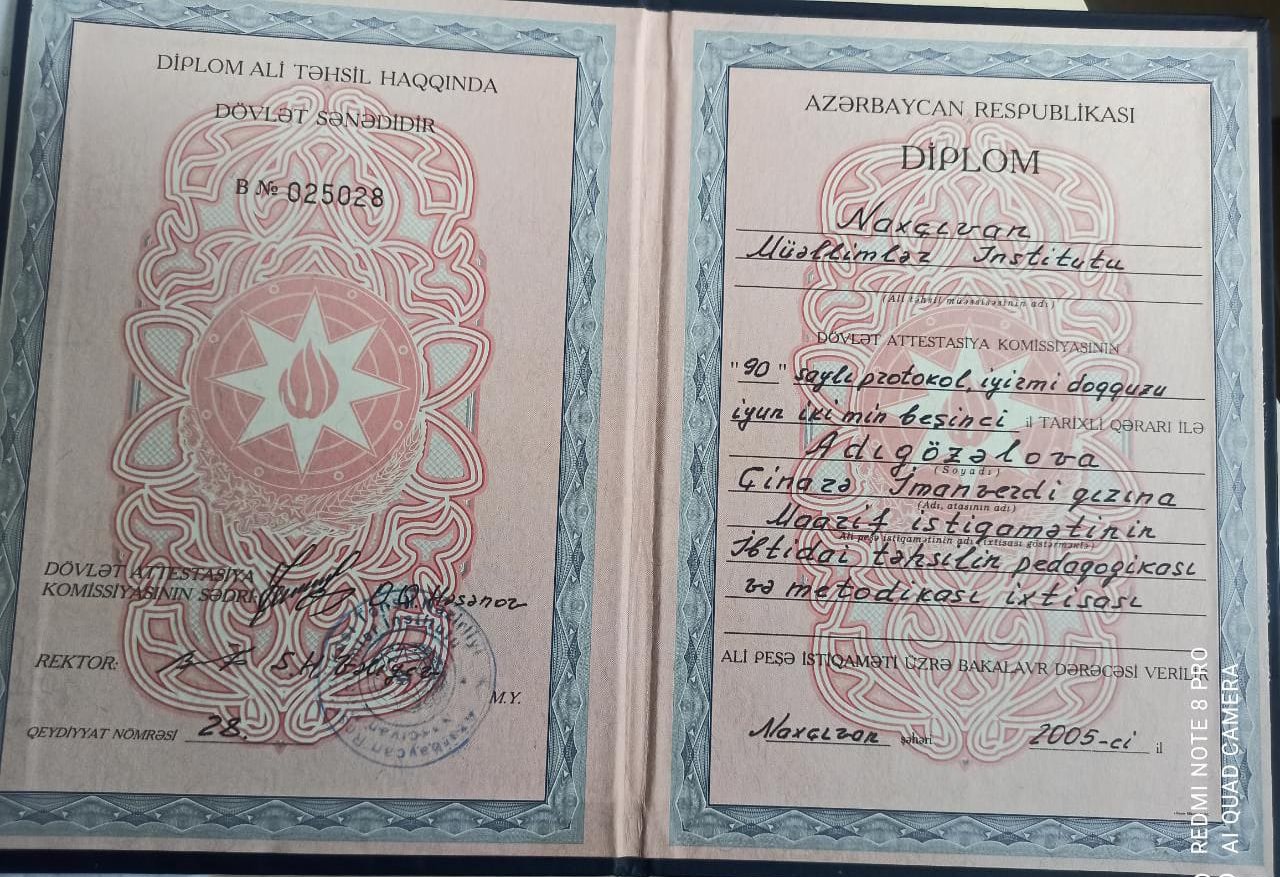 DİPLOM ALİ TƏHSİL HAQQINDA
DÖVLƏT SƏNƏDİDİR
B № 025028
DÖVLƏT ATTESTASİYA
KOMİSSİYASININ SƏDRİ: Həsənov
REKTOR: S.H.
M.Y.
QEYDİYYAT NÖMRƏSİ 28.
AZƏRBAYCAN RESPUBLİKASI
DİPLOM
Naxçıvan
Müəllimlər İnstitutu
(Ali təhsil müəssisəsinin adı)
DÖVLƏT ATTESTASİYA KOMİSSİYASININ
"90" saylı protokol, iyirmi doqquzu
iyun iki min beşinci il TARİXLİ QƏRARI İLƏ
Adıgözəlova
(Soyadı)
Çinarə İmanverdi qızına
(Adı, atasının adı)
Maarif istiqamətinin
Ali peşə istiqamətinin adı (ixtisası göstərməklə)
İbtidai təhsilin pedaqogikası
və metodikası ixtisası
ALİ PEŞƏ İSTİQAMƏTİ ÜZRƏ BAKALAVR DƏRƏCƏSİ VERİLİR
Naxçıvan şəhəri 2005-ci il
REDMI NOTE 8 PRO
AI QUAD CAMERA